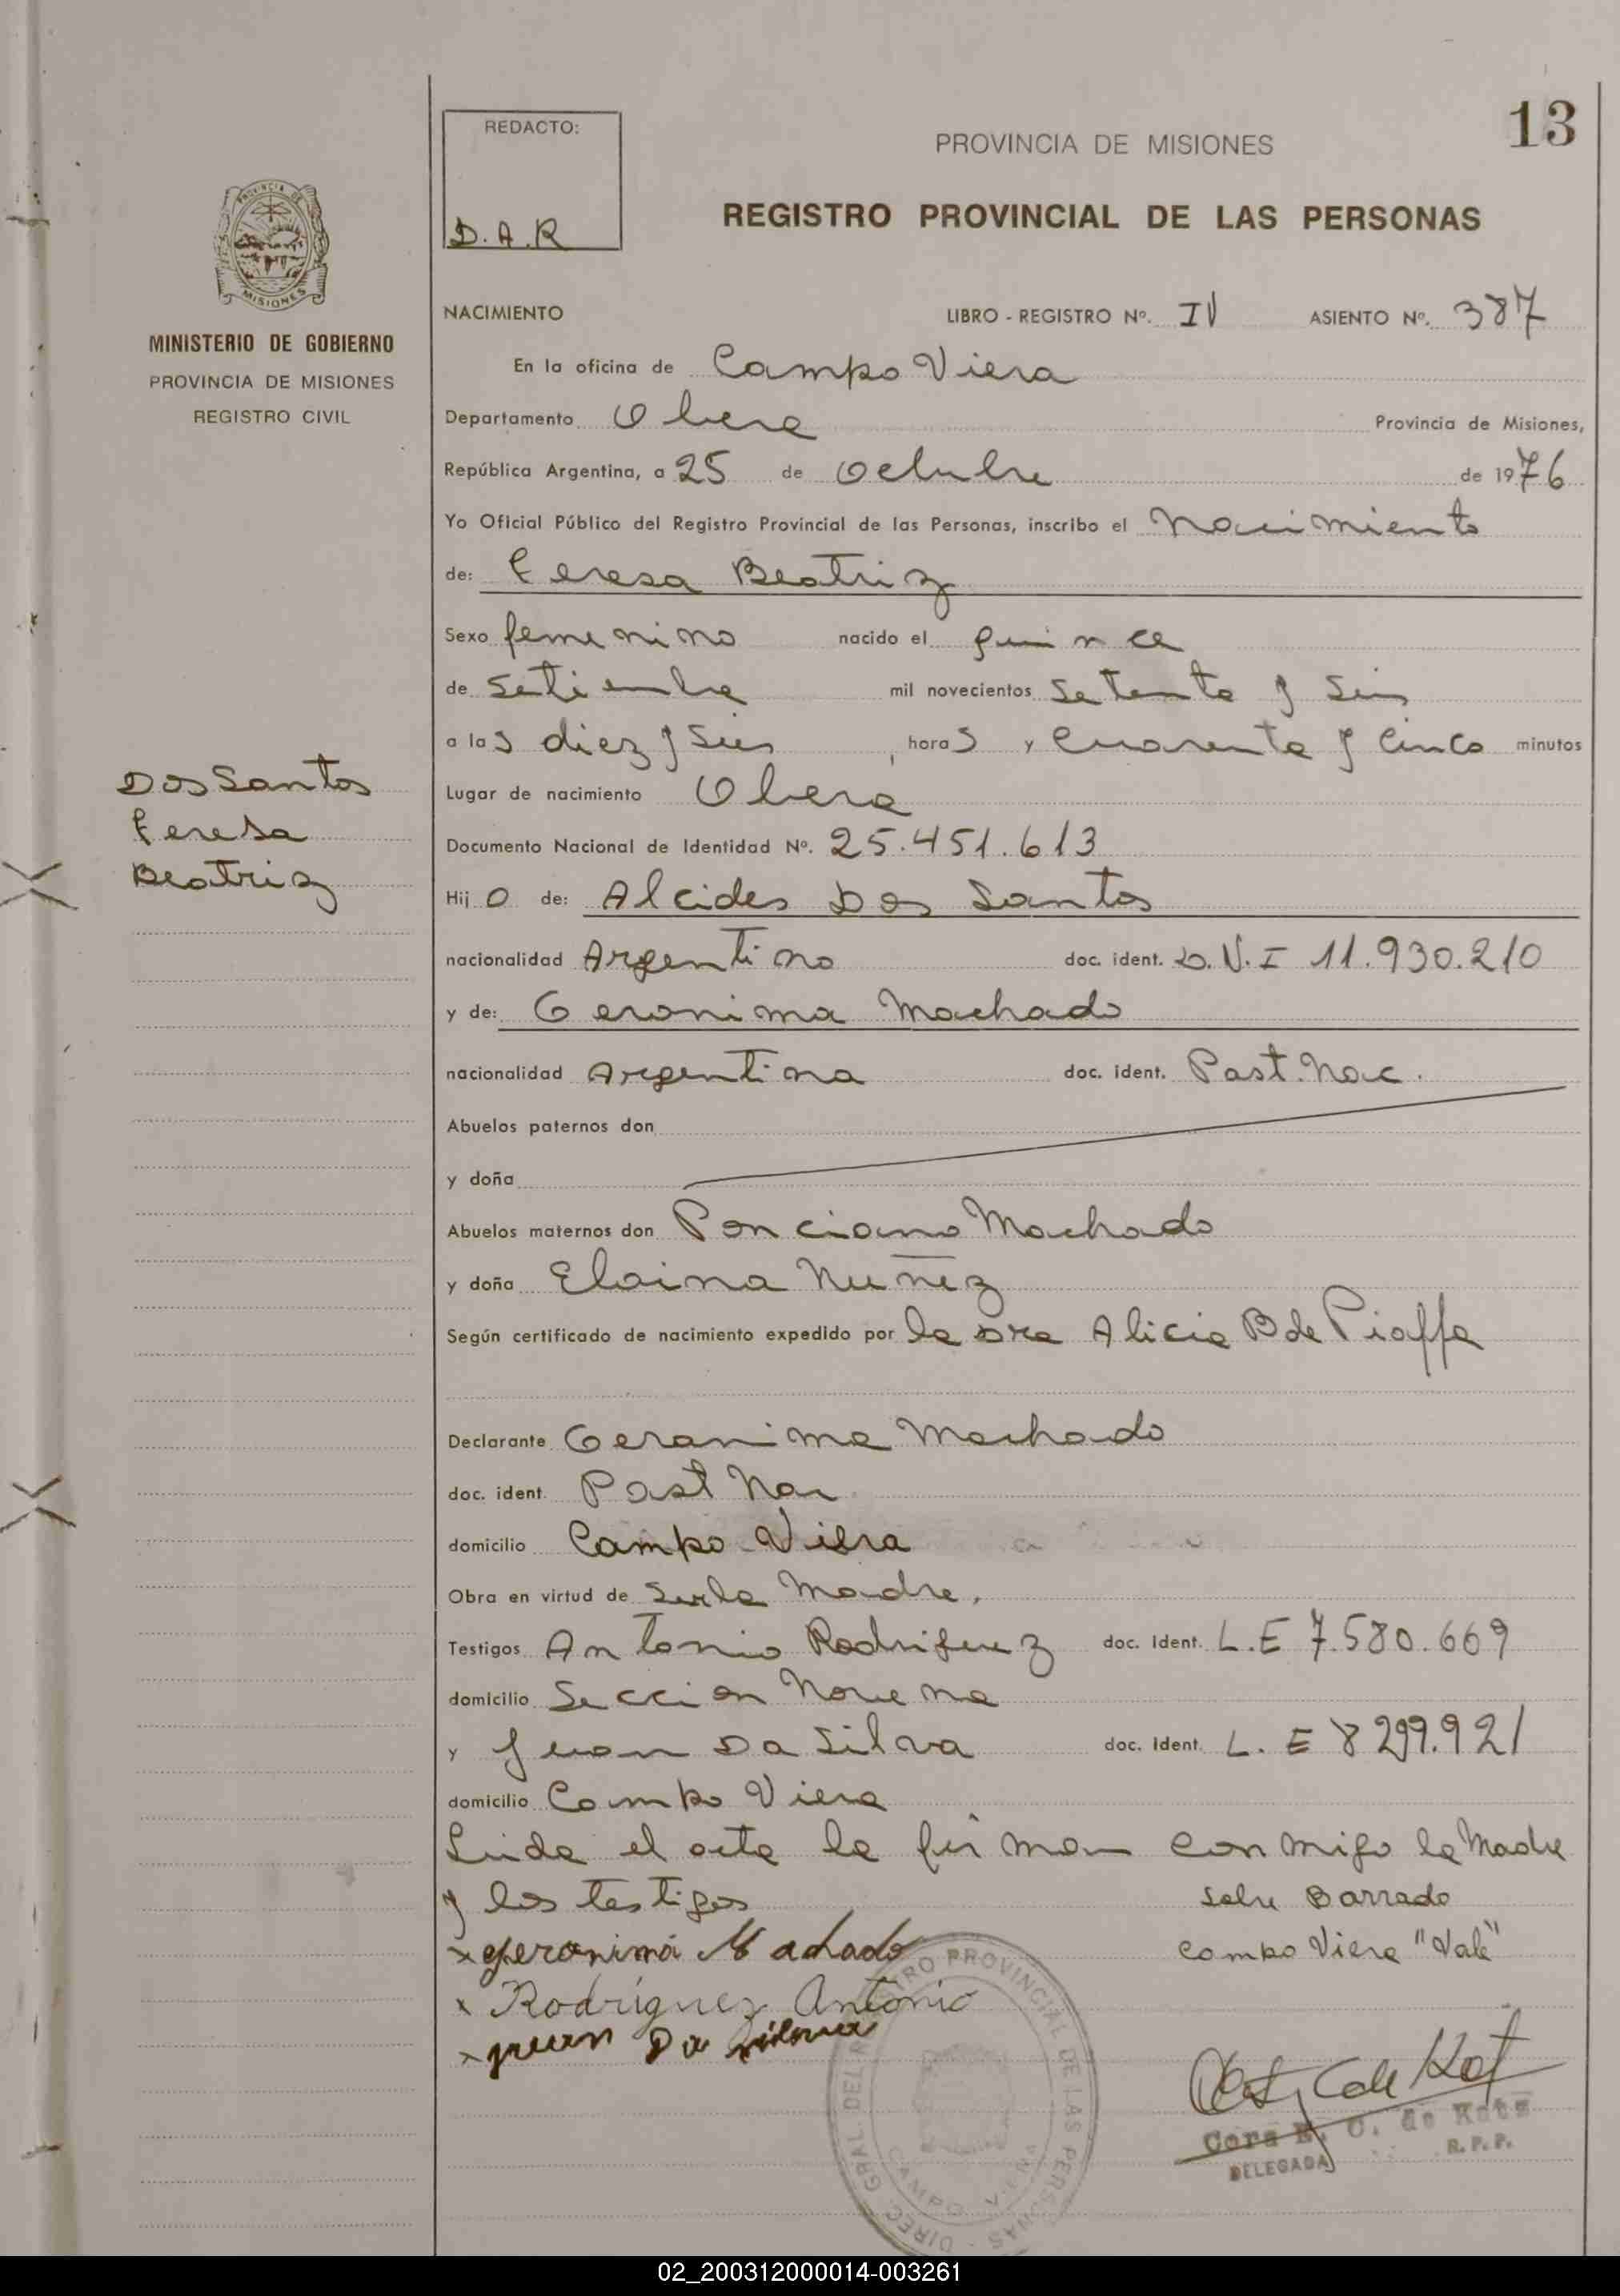 13
REDACTO:
D.A.R
PROVINCIA DE MISIONES
REGISTRO PROVINCIAL DE LAS PERSONAS
PROVINCIA DE
MISIONES
MINISTERIO DE GOBIERNO
PROVINCIA DE MISIONES
REGISTRO CIVIL
NACIMIENTO LIBRO - REGISTRO Nº. IV ASIENTO Nº. 387
En la oficina de Campo Viera
Departamento Obera Provincia de Misiones,
República Argentina, a 25 de Octubre de 1976
Yo Oficial Público del Registro Provincial de las Personas, inscribo el Nacimiento
de: Teresa Beatriz
Sexo femenino nacido el quince
de Setiembre mil novecientos Setenta y Seis
a las diez y Seis, horas y Cuarenta y Cinco minutos
Dos Santos
Teresa
Beatriz
Lugar de nacimiento Obera
Documento Nacional de Identidad Nº. 25.451.613
Hij o de: Alcides Dos Santos
nacionalidad Argentino doc. ident. D.N.I 11.930.210
y de: Geronima Machado
nacionalidad Argentina doc. ident. Part. Nac.
Abuelos paternos don
y doña
Abuelos maternos don Ponciano Machado
y doña Elaina Nuñez
Según certificado de nacimiento expedido por la Dra Alicia B de Pioffa
Declarante Geranima Machado
doc. ident. Part Nac
domicilio Campo Viera
Obra en virtud de Ser la Madre,
Testigos Antonio Rodriguez doc. Ident. L.E 7.580.669
domicilio Seccion Novena
y Juan Da Silva doc. Ident. L.E 8299.921
domicilio Campo Viera
Leida el acta la firman conmigo la Madre
y los testigos Sobre Barrado
Campo Viera "Vale"
x geronima Machado
x Rodríguez Antonio
x juan Da silva
Cora E. C. de Katz
DELEGADA R.P.P.
DIREC. GRAL. DEL REGISTRO PROVINCIAL DE LAS PERSONAS
CAMPO VIERA
02_200312000014-003261